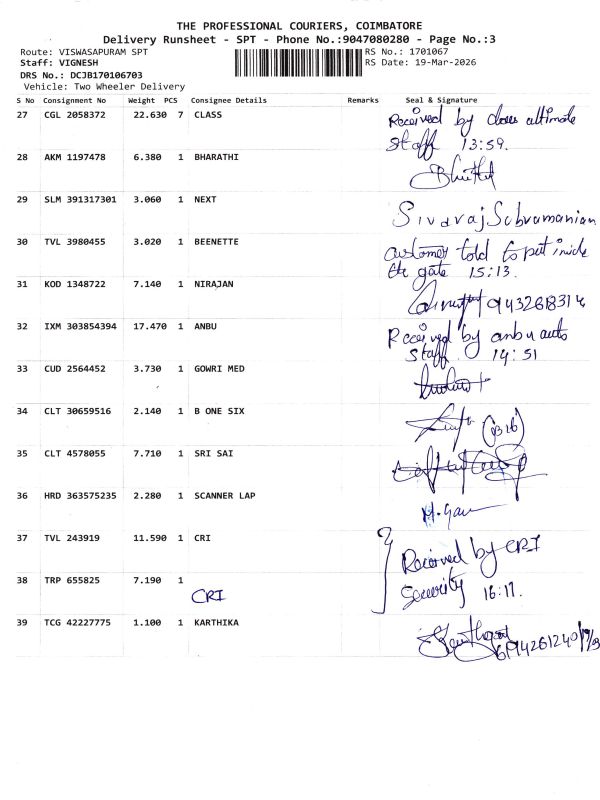 THE PROFESSIONAL COURIERS, COIMBATORE
Delivery Runsheet - SPT - Phone No.:9047080280 - Page No.:3
Route: VISWASAPURAM SPT RS No.: 1701067
Staff: VIGNESH RS Date: 19-Mar-2026
DRS No.: DCJB170106703
Vehicle: Two Wheeler Delivery
S No Consignment No Weight PCS Consignee Details Remarks Seal & Signature
27 CGL 2058372 22.630 7 CLASS
Received by class ultimate
staff 13:59.
28 AKM 1197478 6.380 1 BHARATHI
29 SLM 391317301 3.060 1 NEXT
Sivaraj Subramanian
30 TVL 3980455 3.020 1 BEENETTE
customer told to put inside
the gate 15:13.
31 KOD 1348722 7.140 1 NIRAJAN
32 IXM 303854394 17.470 1 ANBU
Received by anbu auto
staff 14:51
33 CUD 2564452 3.730 1 GOWRI MED
34 CLT 30659516 2.140 1 B ONE SIX
(B16)
35 CLT 4578055 7.710 1 SRI SAI
36 HRD 363575235 2.280 1 SCANNER LAP
37 TVL 243919 11.590 1 CRI
Received by CRI
Security 16:17.
38 TRP 655825 7.190 1
CRI
39 TCG 42227775 1.100 1 KARTHIKA